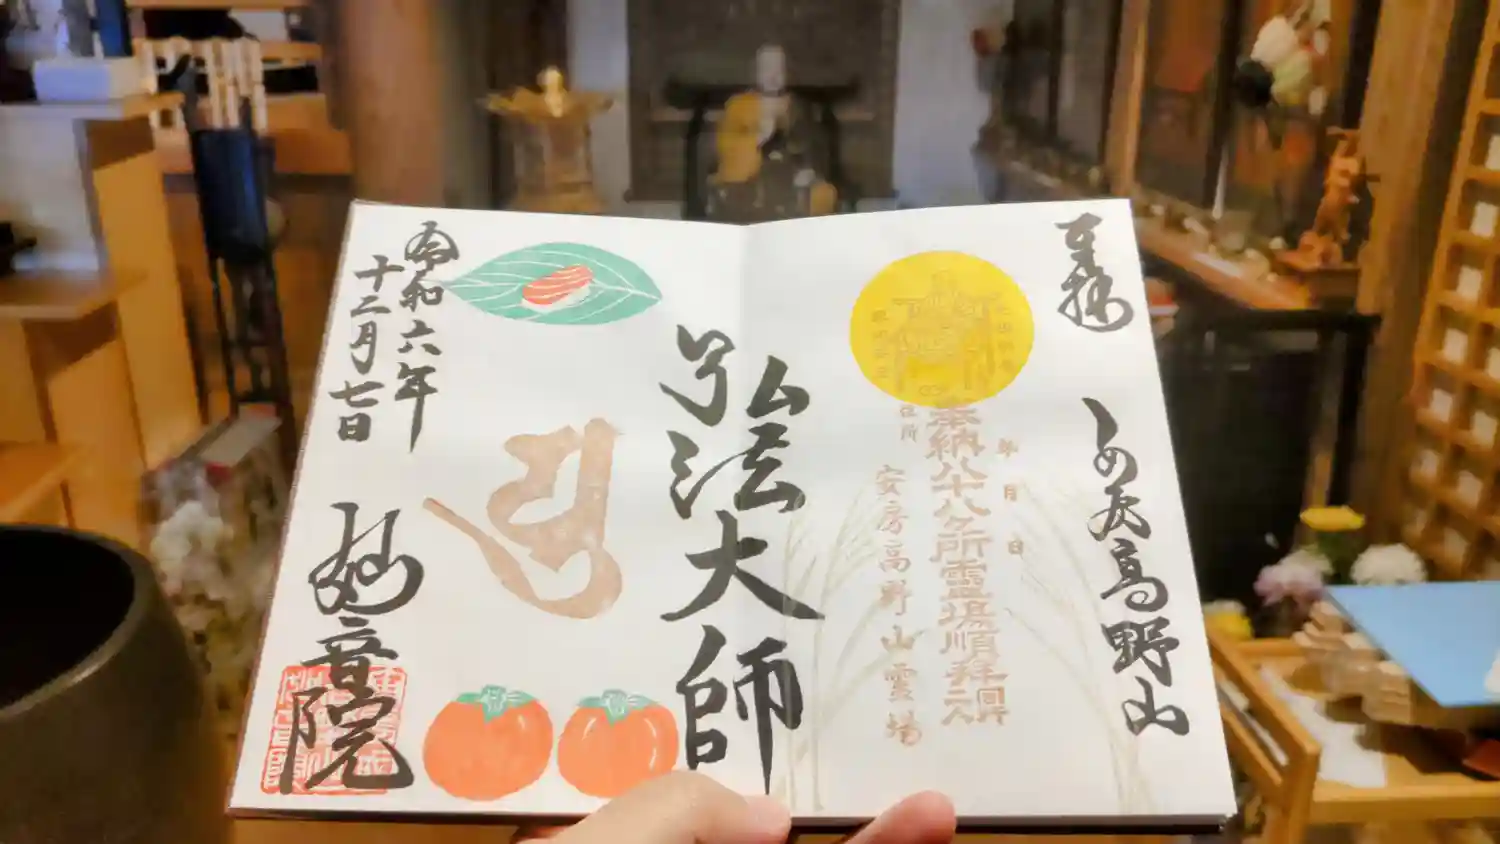 奉拝
あの尻高野山
年 月 日
奉納八十八ヶ所霊場順拝
同行二人
住所
安房高野山霊場
弘法大師
令和六年
十二月七日
妙音院